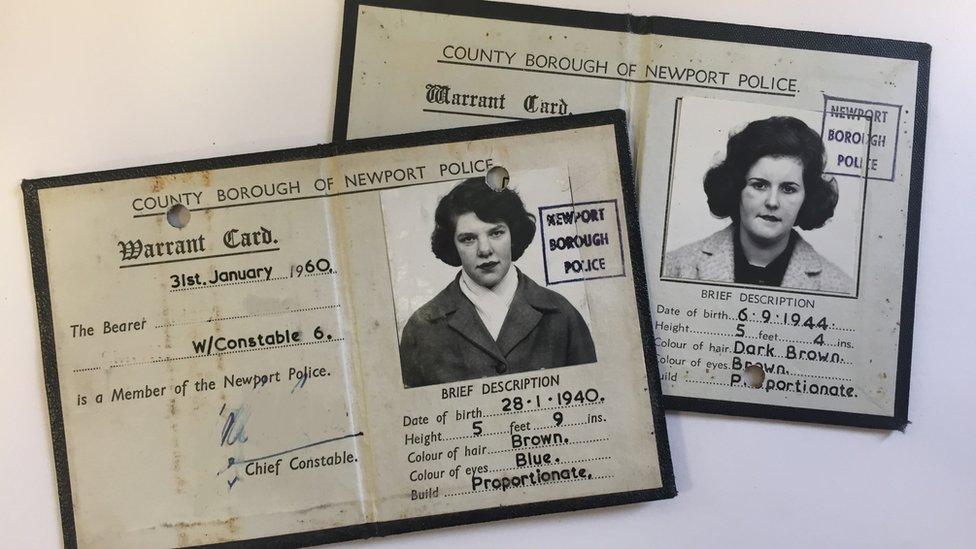 COUNTY BOROUGH OF NEWPORT POLICE
Warrant Card.
NEWPORT
BOROUGH
POLICE
BRIEF DESCRIPTION
Date of birth 6·9·1944.
Height 5 feet 4 ins.
Colour of hair Dark Brown.
Colour of eyes Brown.
Build Proportionate.
COUNTY BOROUGH OF NEWPORT POLICE
Warrant Card.
31st. January 1960.
The Bearer
W/Constable 6.
is a Member of the Newport Police.
Chief Constable.
NEWPORT
BOROUGH
POLICE
BRIEF DESCRIPTION
Date of birth 28·1·1940.
Height 5 feet 9 ins.
Colour of hair Brown.
Colour of eyes Blue.
Build Proportionate.